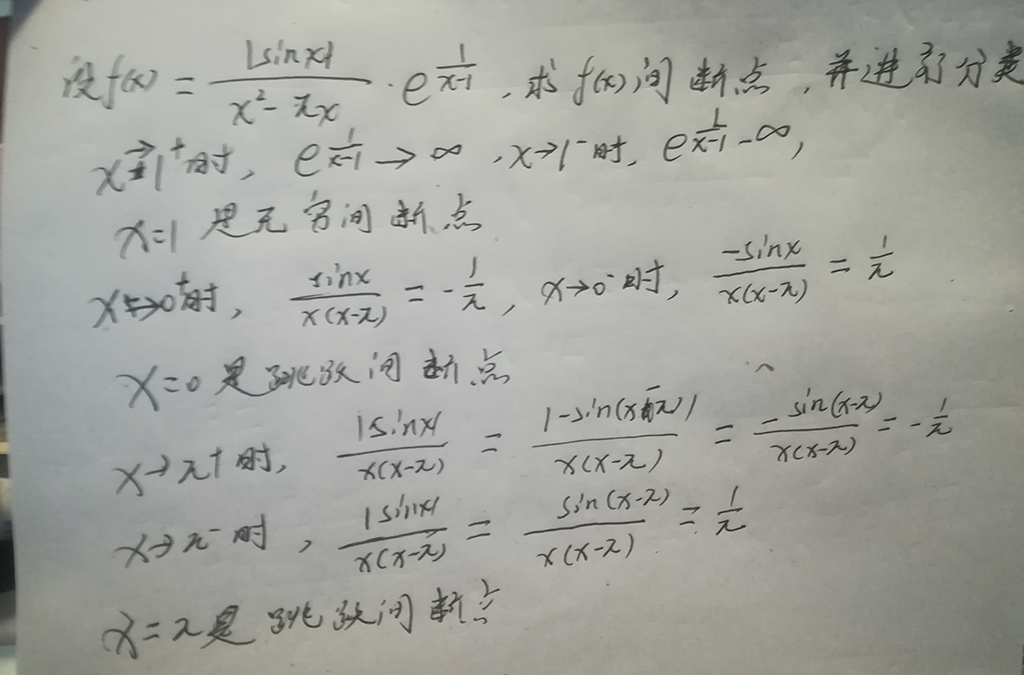 设f(x) = |sinx|/(x²-πx) · e^(1/(x-1)), 求f(x)间断点, 并进行分类
x→1⁺时, e^(1/(x-1)) → ∞, x→1⁻时, e^(1/(x-1)) -∞,
x=1是无穷间断点
x→0⁺时, sinx/(x(x-π)) = -1/π, x→0⁻时, -sinx/(x(x-π)) = 1/π
x=0是跳跃间断点
x→π⁺时, |sinx|/(x(x-π)) = |-sin(x-π)|/(x(x-π)) = -sin(x-π)/(x(x-π)) = -1/π
x→π⁻时, |sinx|/(x(x-π)) = sin(x-π)/(x(x-π)) = 1/π
x=π是跳跃间断点